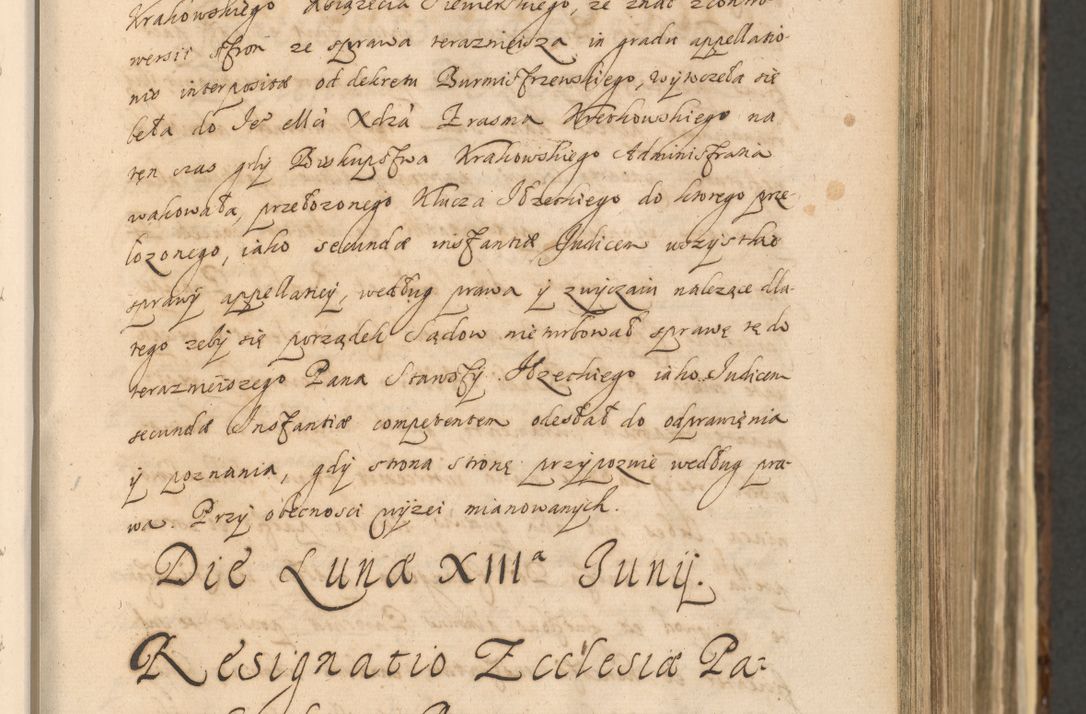 Krakowskiego Xiążęcia Siewierskiego, ze znac z contro-
wersii stron ze sprawa terazniejsza in gradu appellatio-
nis interpositæ od dekretu Burmistrzewskiego, wytoczeła się
beła do Je° Mći Xdza Erasma Kretkowskiego na
ten czas gdy Biskupstwa Krakowskiego Administratia
wakowała, przełozonego Klucza Iłzeckiego do ktorego prze-
łozonego, iako secundæ instantiæ Judicem wszystkie
sprawy appellaciey, według prawa y zwyczaiu nalezące dla-
tego zeby się porządek Sądow nieturbował sprawę tę do
teraznieiszego Pana Starosty Iłzeckiego iako Judicem
secundæ Instantiæ competentem odesłał do odprawienia
y poznania, gdy strona stronę przypozwie według pra-
wa. Przy obecnosci wyżei mianowanych.
Die Lunæ XIII<sup>a</sup> Junij.
Resignatio Ecclesiæ Pa-